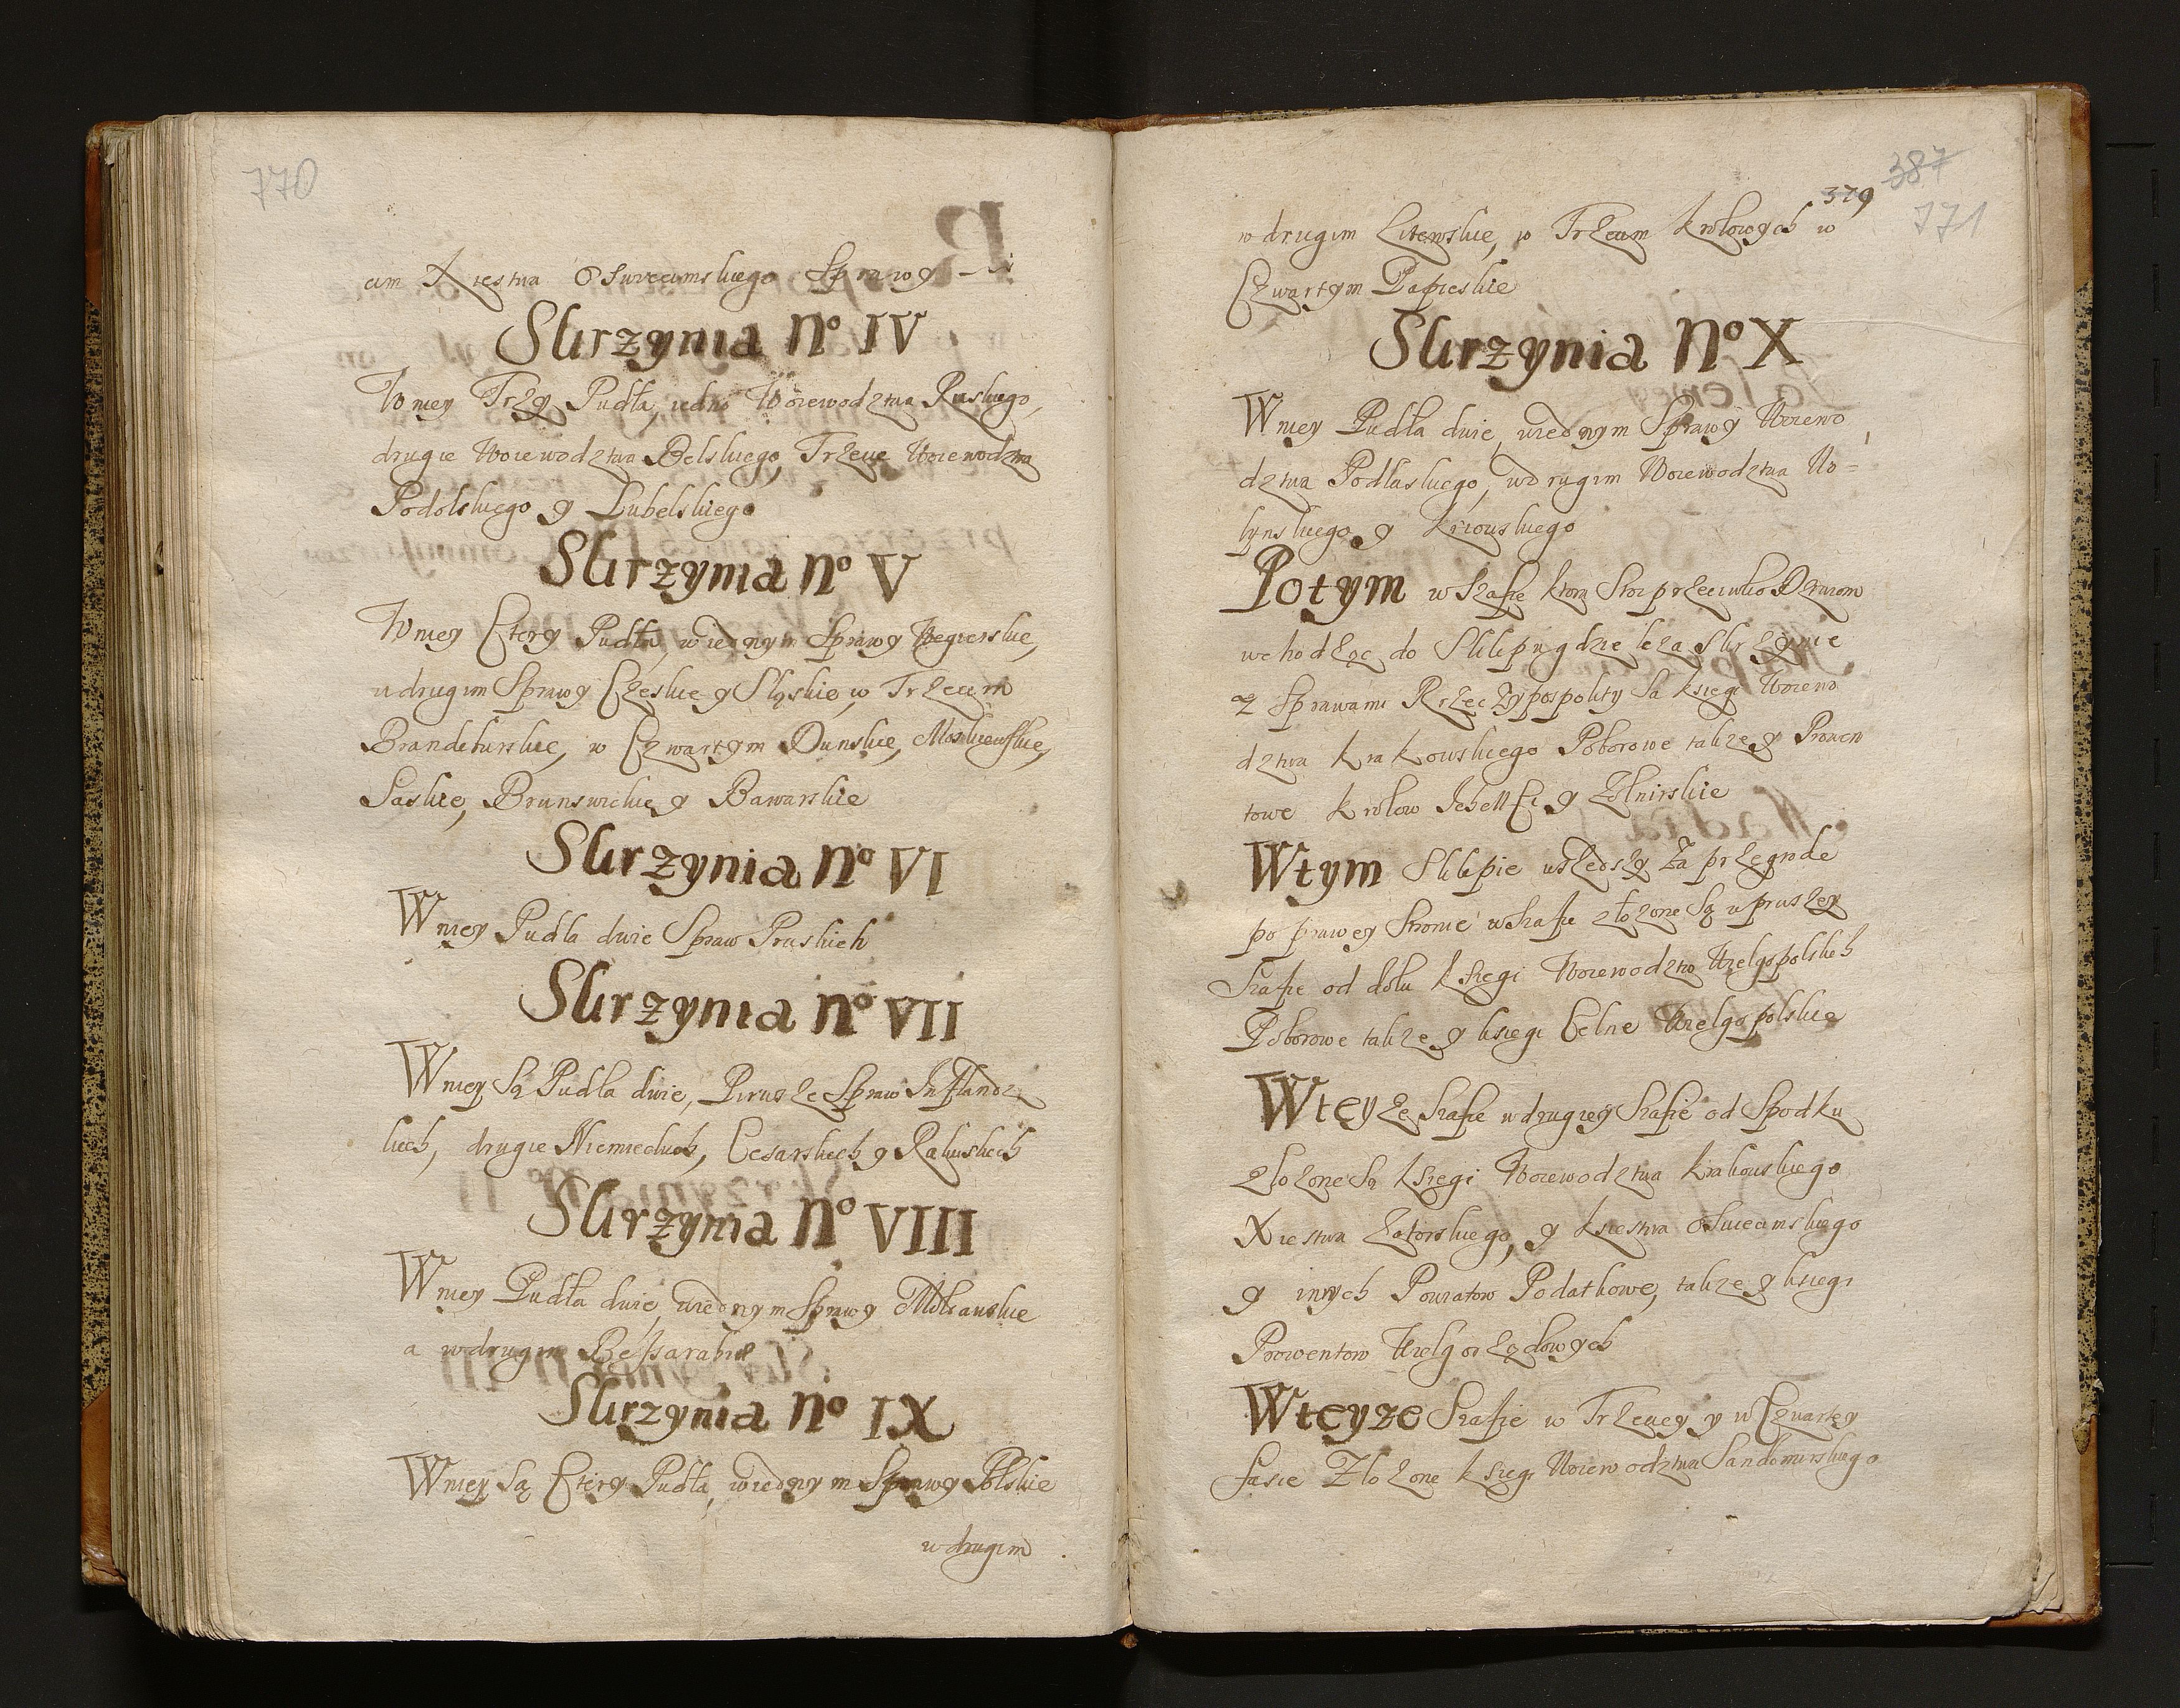 770
cim Xiestwa Oswiecimskiego Sprawy
Skrzynia No IV
W niey Trzy Pudła, iedno Woiewodztwa Ruskiego,
drugie Woiewodztwa Belskiego, Trzecie Woiewodztwa
Podolskiego y Lubelskiego
Skrzynia No V
W niey Cztery Pudła, w iednym Sprawy Węgierskie,
w drugim Sprawy Czeskie y Sląskie, w Trzecim
Brandeburskie, w Czwartym Dunskie, Moskiewskie,
Saskie, Brunswickie y Bawarskie
Skrzynia No VI
W niey Pudła dwie Spraw Pruskich
Skrzynia No VII
W niey Są Pudła dwie, Pirusze Spraw Inflandz
kich, drugie Niemieckich, Cesarskich y Rakuskich
Skrzynia No VIII
W niey Pudła dwie, wiednym Sprawy Mołdawskie
a w drugim Bessarabie
Skrzynia No IX
W niey Są Cztery Pudła, w iednym Sprawy Polskie
w drugim
379 387
771
w drugim Litewskie, w Trzecim Krolowych w
Czwartym Papieskie
Skrzynia No X
W niey Pudła dwie, wiednym Sprawy Woiewo
dztwa Podlaskiego, w drugim Woiewodztwa Wo=
łynskiego y Kiiowskiego
Potym w Szafie ktora Stoi przeciwko Drzwiom
wchodząc do Sklepu gdzie leżą Skrzynie
z Sprawami Rzeczypospolity Są księgi Woiewo
dztwa Krakowskiego Poborowe także y Prowen
towe Krolow Ichmci y Żołnirskie
Wtym Sklepie wszedszy Za przegrode
po prawey Stronie w Szafie złożone Są w pruszey
Szafie od dołu Księgi Woiewodztw Wielgopolskich
Poborowe także y księgi Celne Wielgopolskie
Wteyże Szafie w drugiey Szafie od Spodku
złożone Są Księgi Woiewodztwa Krakowskiego
Xiestwa Zatorskiego, y Ksiestwa Oswiecimskiego
y innych Powiatow Podatkowe, także y księgi
Prowentow Wielgorządowych
Wteyze Szafie w Trzeciey y w Czwartey
Szasie Złożone Księgi Woiewodztwa Sandomirskiego